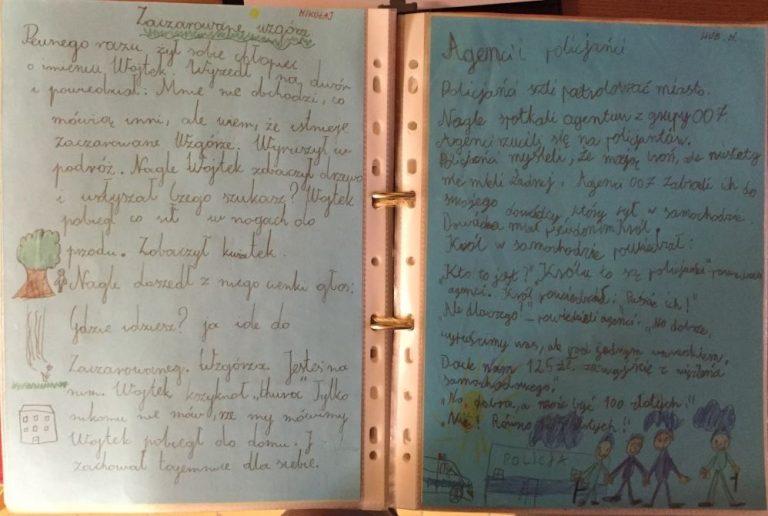 MIKOŁAJ
Zaczarowane wzgórze
Pewnego razu żył sobie chłopiec
o imieniu Wojtek. Wyszedł na dwór
i powiedział: Mnie nie obchodzi, co
mówią inni, ale wiem, że istnieje
Zaczarowane Wzgórze. Wyruszył w
podróż. Nagle Wojtek zobaczył drzewo
i usłyszał Czego szukasz? Wojtek
pobiegł co sił w nogach do
przodu. Zobaczył kwiatek.
Nagle doszedł z niego cienki głos:
Gdzie idziesz? ja idę do
Zaczarowaneg. Wzgórza. Jesteś na
nim. Wojtek krzyknął „hura" Tylko
nikomu nie mów, że my mówimy
Wojtek pobiegł do domu. I
zachował tajemnice dla siebie.
Agenci i policjańci
Policjańci szli patrolować miasto.
Nagle spotkali agentów z grupy 007
Agenci rzucili się na policjantów.
Policjańci myśleli, że mają broń, ale niestety
nie mieli żadnej. Agenci 007 zabrali ich do
swojego dowódcy, który był w samochodzie.
Dowódca miał pseudonim Król.
Król w samochodzie powiedział:
„Kto to jest?" „Królu to są policjańci"
agenci. Król powiedział: „Puśćić ich!"
„Nie dlaczego" – powiedzieli agenci. „No dobrze,
wypuścimy was, ale pod jednym warunkiem,
Dacie nam 125 zł, za wyjście z więzienia
samochodowego"
„No, dobra, a może być 100 złotych!"
„Nie! Równo złotych!"
POLICJA